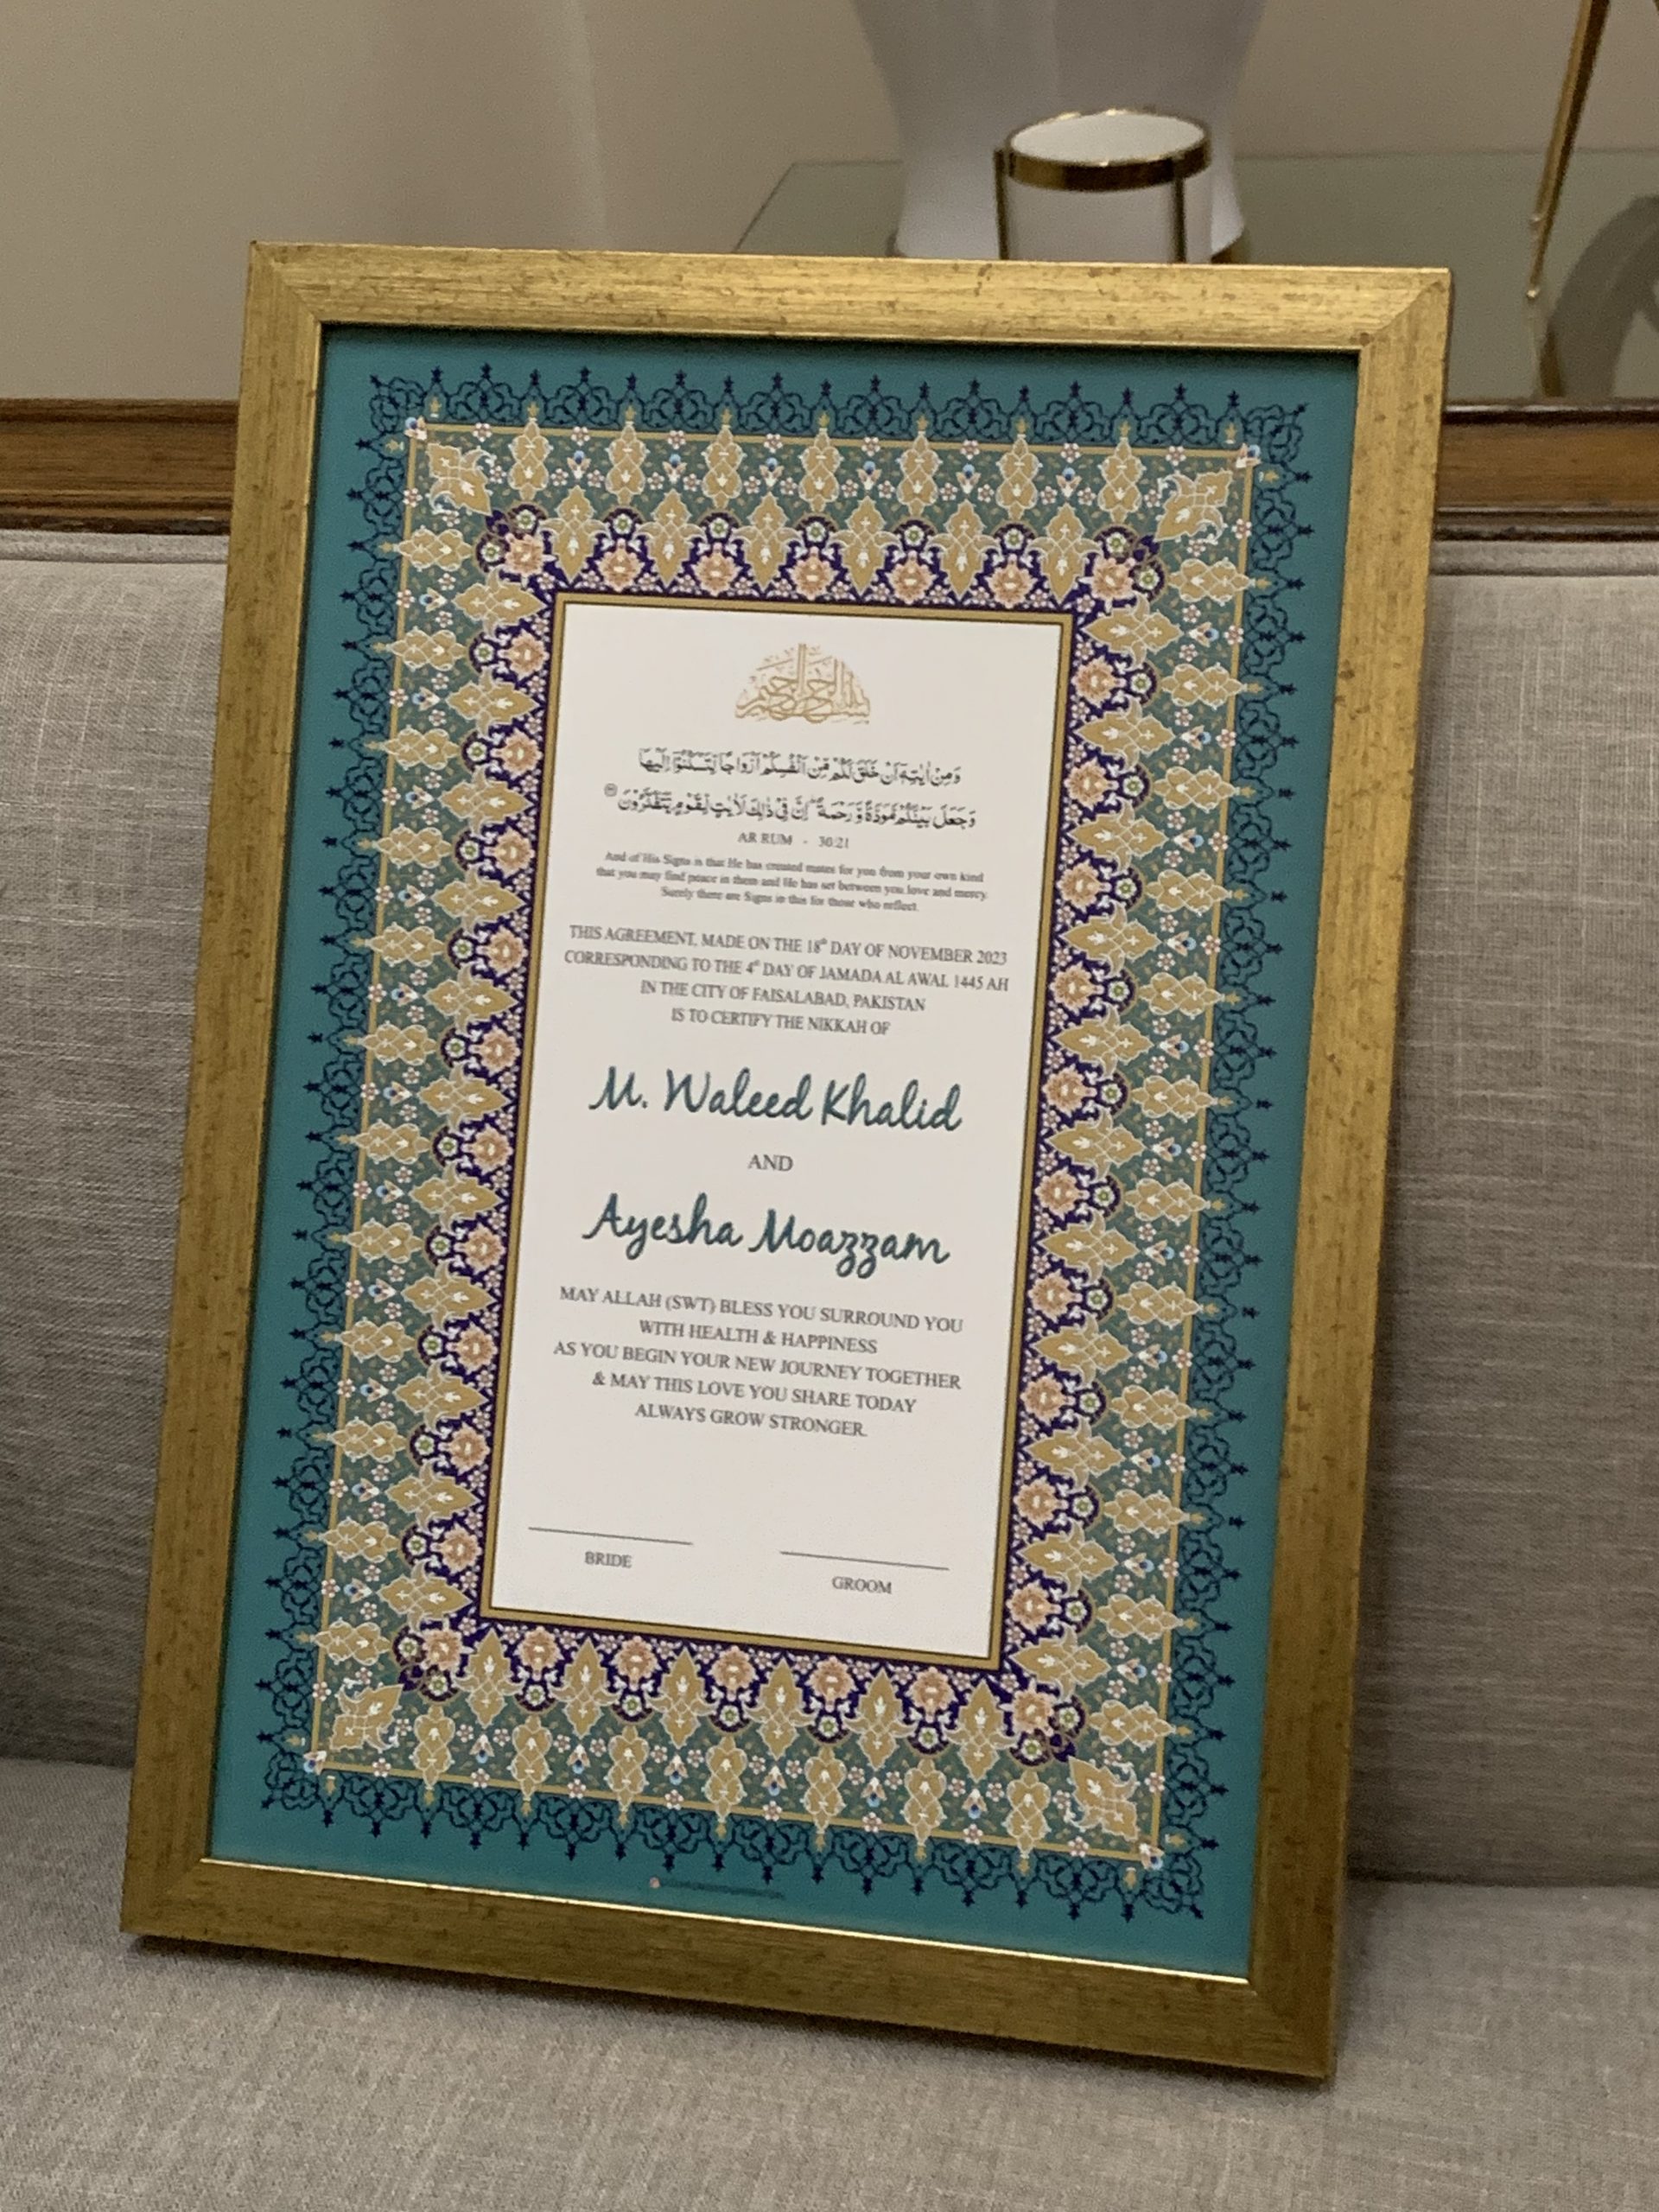 بسم الله الرحمن الرحيم
وَمِنْ اٰيٰتِهٖٓ اَنْ خَلَقَ لَكُمْ مِّنْ اَنْفُسِكُمْ اَزْوَاجًا لِّتَسْكُنُوْٓا اِلَيْهَا
وَجَعَلَ بَيْنَكُمْ مَّوَدَّةً وَّرَحْمَةً ؕ اِنَّ فِيْ ذٰلِكَ لَاٰيٰتٍ لِّقَوْمٍ يَّتَفَكَّرُوْنَ
AR RUM - 30:21
And of His Signs is that He has created mates for you from your own kind
that you may find peace in them and He has set between you love and mercy.
Surely there are Signs in this for those who reflect.
THIS AGREEMENT, MADE ON THE 18th DAY OF NOVEMBER 2023
CORRESPONDING TO THE 4th DAY OF JAMADA AL AWAL 1445 AH
IN THE CITY OF FAISALABAD, PAKISTAN
IS TO CERTIFY THE NIKKAH OF
M. Waleed Khalid
AND
Ayesha Moazzam
MAY ALLAH (SWT) BLESS YOU SURROUND YOU
WITH HEALTH & HAPPINESS
AS YOU BEGIN YOUR NEW JOURNEY TOGETHER
& MAY THIS LOVE YOU SHARE TODAY
ALWAYS GROW STRONGER.
BRIDE
GROOM